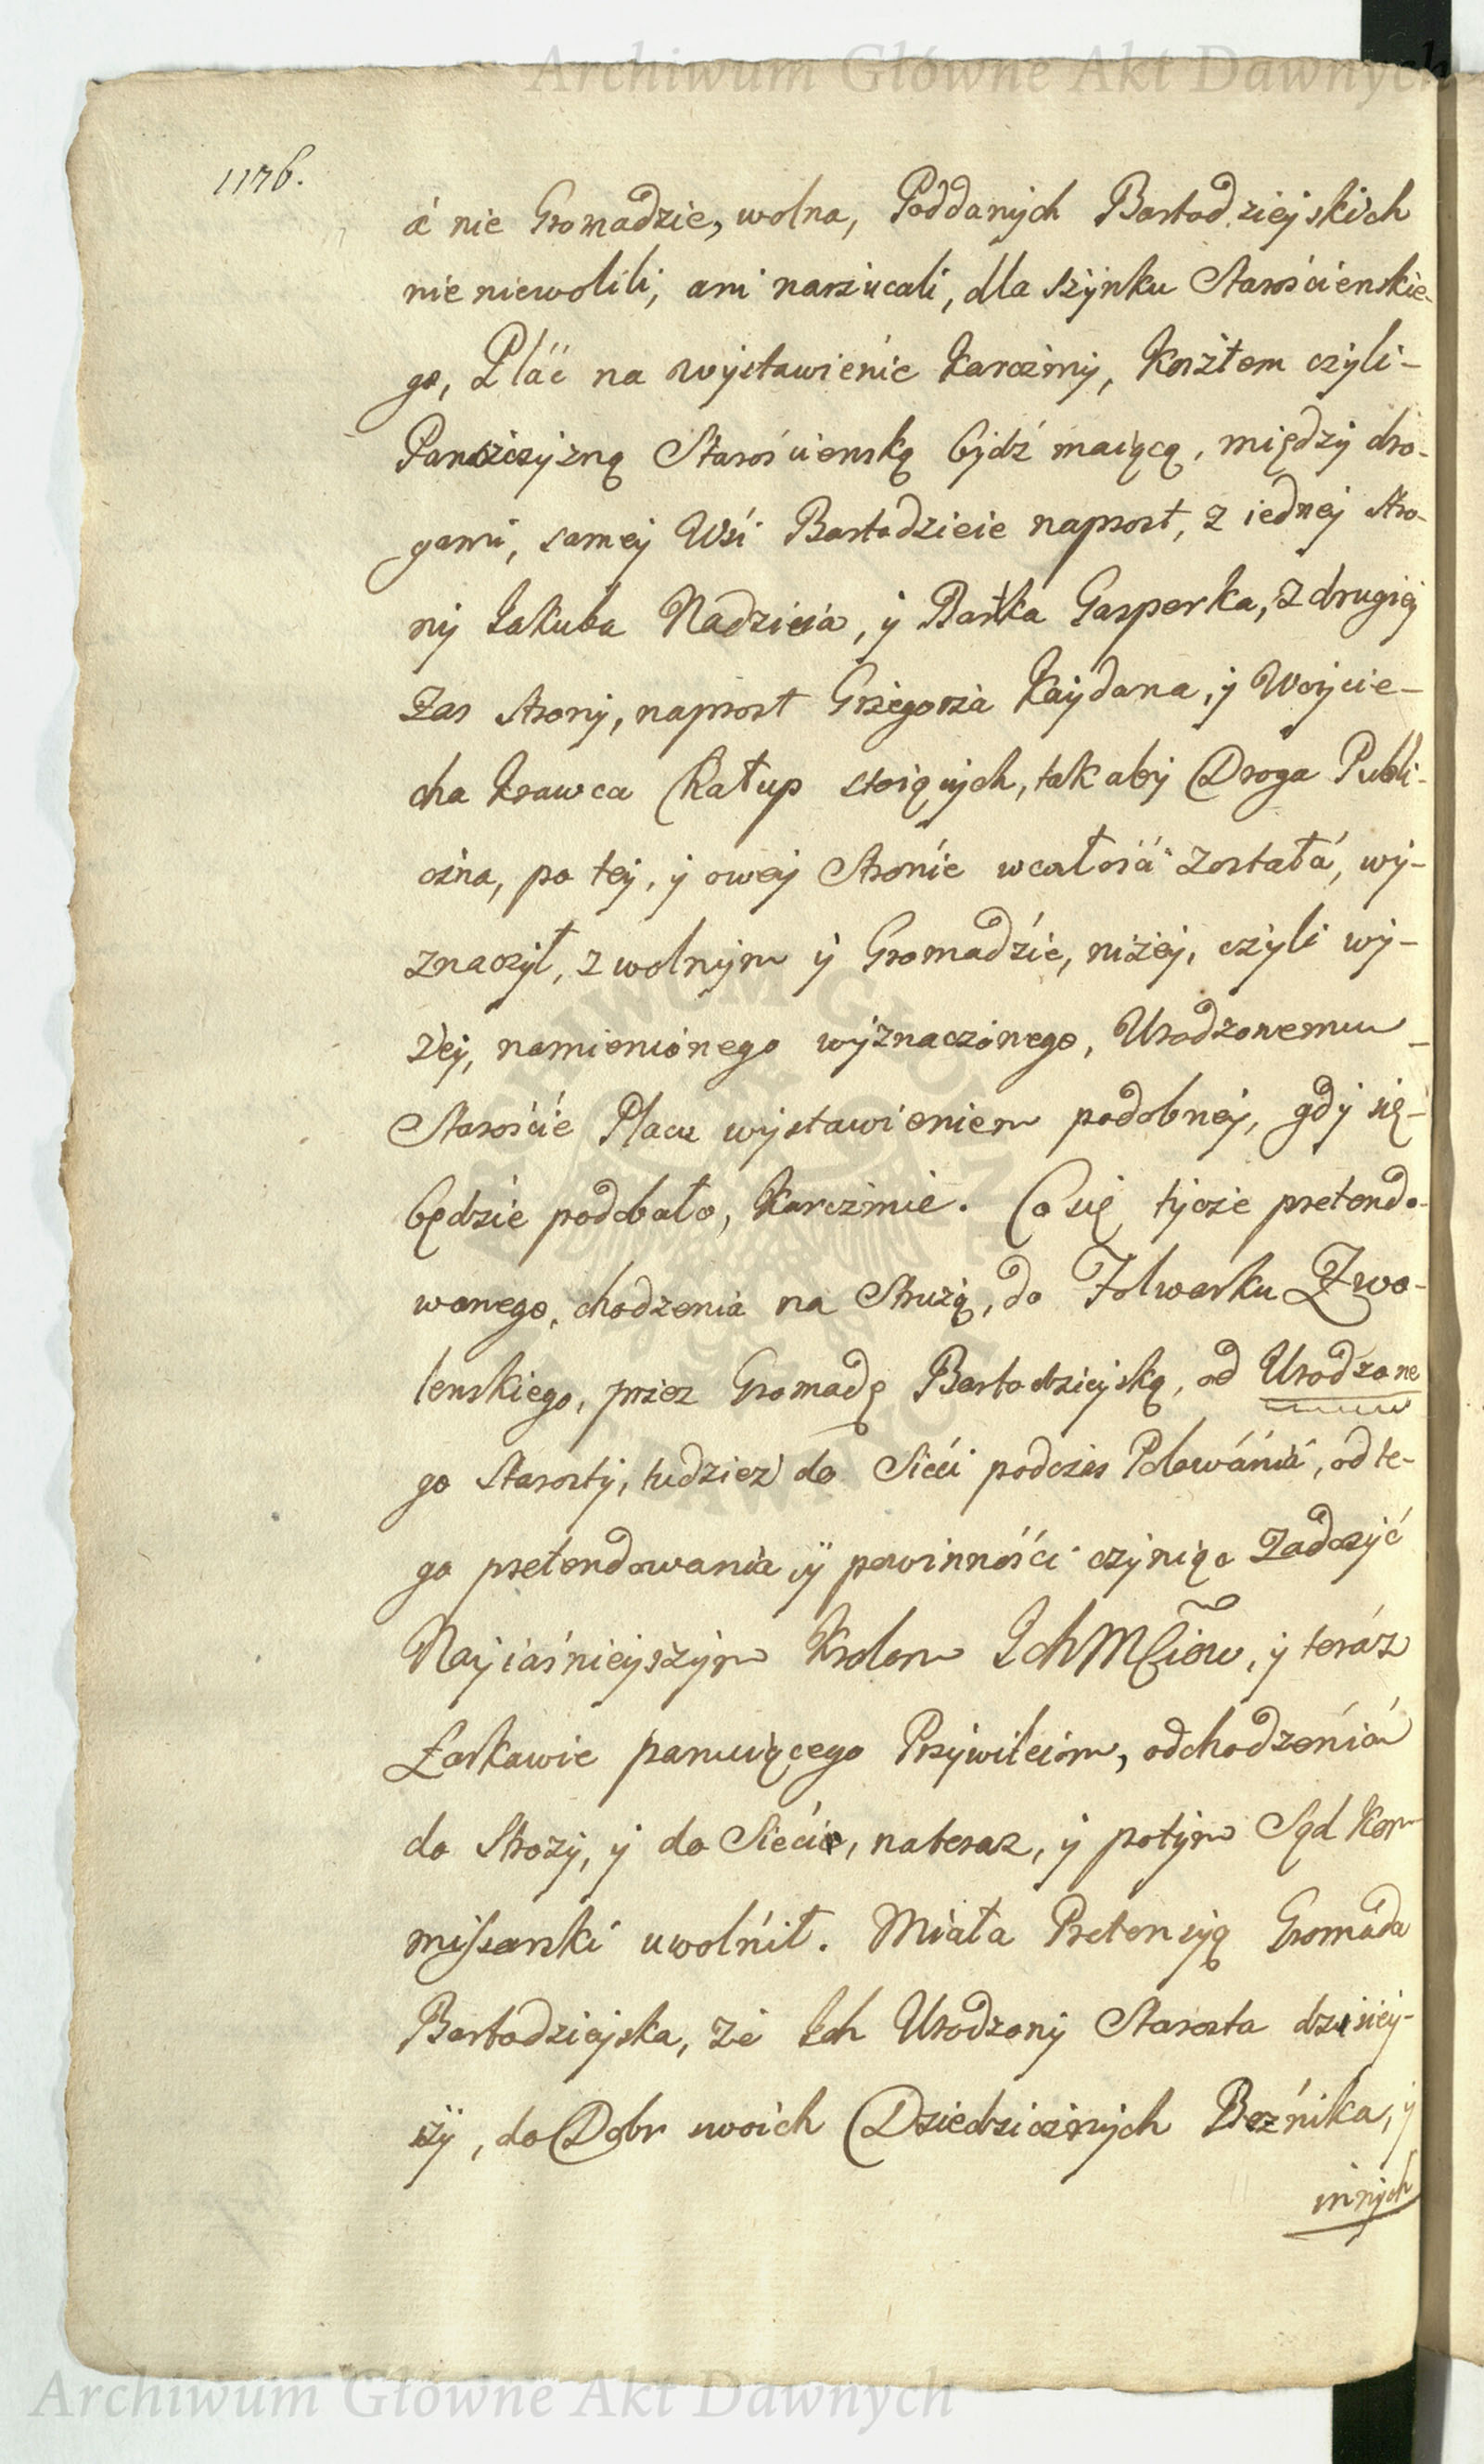 Archiwum Główne Akt Dawnych
1176.
á nie Gromadzie, wolna, Poddanych Bartodzieyskich
nie niewolili, ani narzucali, dla szynku Starościenskie-
go, Plac na wystawienie Karczmy, Kosztem czyli-
Panszczyzną Starościenską bydź maiącą, między dro-
gami, samey Wśi Bartodzieie naprost, z iedney stro-
ny Jakuba Nadzieia, y Bartka Gasperka, z drugiey
zas strony, naprost Grzegorza Kaydana, y Woycie-
cha Krawca Chałup stoiących, tak aby Droga Publi-
czna, po tey, y owey stronie wcałości została, wy-
znaczył, z wolnym y Gromadzie, niżey, czyli wy-
żey, namienionego wyznaczonego, Urodzonemu
Starościie Placu wystawieniem podobney, gdy się-
będzie podobało, Karczmie. Co się tycze pretendo-
wanego, chodzenia na Strużą, do Folwarku Zwo-
lenskiego, przez Gromadę Bartodzieyską, od Urodzone
go Starosty, tudziez do Sieci podczas Polowánia, od te-
go pretendowania y powinności czyniąc Zadosyć
Nayiaśnieyszym Krolom IchMciow, y teráz
Łaskawie panuiącego Przywileiom, od chodzenia
do Stroży, y do Siecie, nateraz, y potym Sąd Kom-
missarski uwolnił. Miała Pretensyą Gromáda
Bartodzieyska, że Ich Urodzony Starosta dzisiey-
szy, do Dobr swoich Dziedzicznych Beźnika, y
innych
ARCHIWUM GŁÓWNE AKT DAWNYCH
Archiwum Główne Akt Dawnych